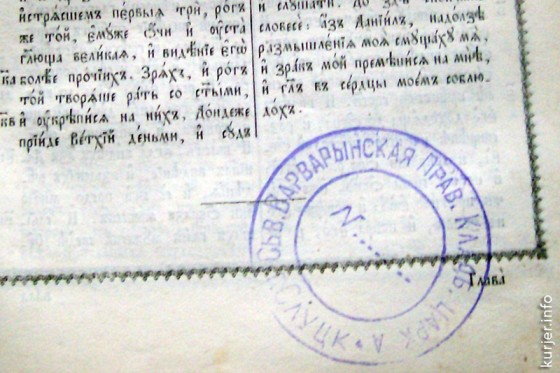 и҆стрѧ́сшемъ пе́рвыѧ три̑, ро́гъ
же то́й, є҆мꙋ́же ѻ҆́чи и҆ ᲂу҆ста̀
глю́ща вели̑каѧ, и҆ видѣ́нїе є҆гѡ̀
к҃а бо́лѣе про́чихъ. Зрѧ́хъ, и҆ ро́гъ
то́й творѧ́ше ра́ть со ст҃ы́ми,
к҃в и҆ ᲂу҆крѣпи́сѧ на ни́хъ, До́ндеже
прїи́де ве́тхїй де́ньми, и҆ сꙋ́дъ
словесѐ: а҆́зъ Данїи́лъ, надо́лзѣ
размышлє́нїѧ моѧ̑ смꙋща́хꙋ мѧ̀,
и҆ зра́къ мо́й премѣни́сѧ на мнѣ̀,
и҆ гл҃ъ въ се́рдцы мое́мъ соблю-
до́хъ.
СЬВ. ВАРВАРЫНСКАЯ ПРАВ. ЦАРК А * СЛУЦК
N.......
Глава̀
kurjer.info